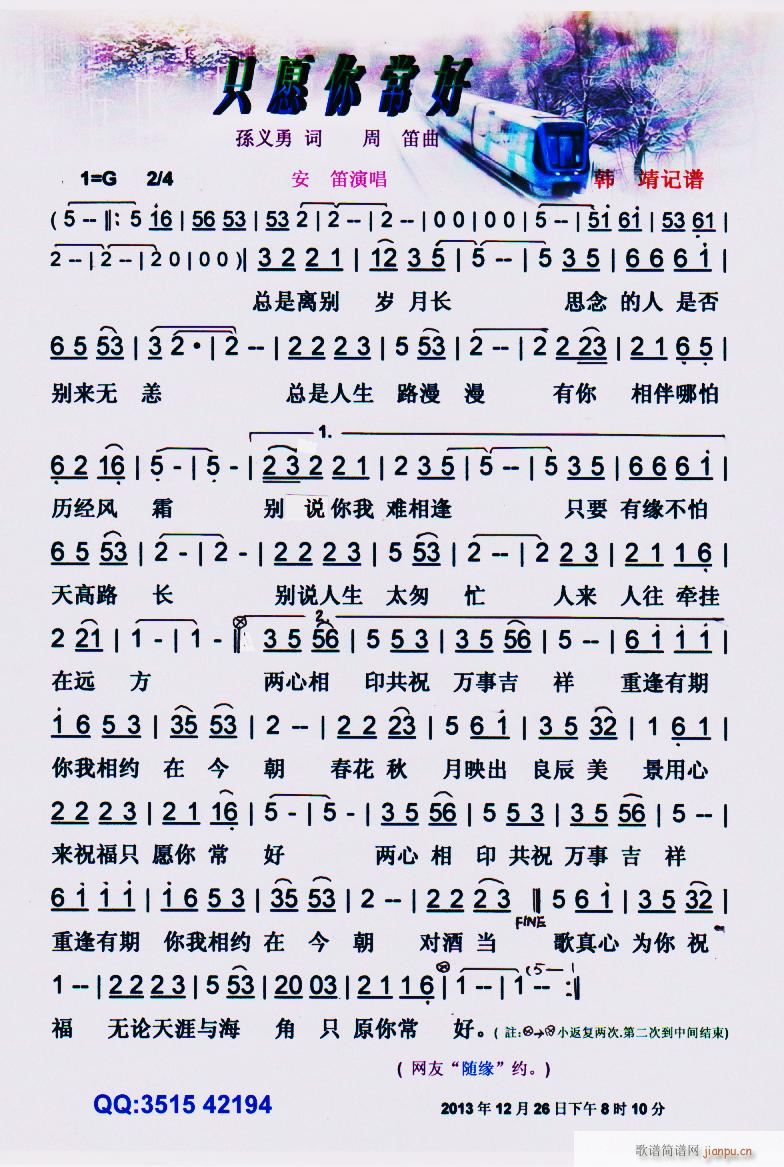 只愿你常好
孫义勇 词 周 笛曲
1=G 2/4 安 笛演唱 韩 靖记谱
( 5 -- ‖: 5 1̇6 | 56 53 | 53 2 | 2 -- | 2 -- | 0 0 | 0 0 | 5 -- | 51 61 | 53 61 |
2 -- | 2 -- | 2 0 | 0 0 )‖ 3 2 2 1 | 12 3 5 | 5 -- | 5 3 5 | 6 6 6 1̇ |
总是离别 岁 月长 思念 的人 是否
6 5 53 | 3 2 · | 2 -- | 2 2 2 3 | 5 53 | 2 -- | 2 2 23 | 2 1 6 5 |
别来无 恙 总是人生 路漫 漫 有你 相伴哪怕
1.
6 2 16 | 5 - | 5 - | 2 3 2 2 1 | 2 3 5 | 5 -- | 5 3 5 | 6 6 6 1̇ |
历经风 霜 别 说你我 难相逢 只要 有缘不怕
6 5 53 | 2 - | 2 - | 2 2 2 3 | 5 53 | 2 -- | 2 2 3 | 2 1 1 6 |
天高路 长 别说人生 太匆 忙 人来 人往 牵挂
2.
2 21 | 1 - | 1 - ‖ 3 5 56 | 5 5 3 | 3 5 56 | 5 -- | 6 1̇ 1̇ 1̇ |
在远 方 两心相 印共祝 万事吉 祥 重逢有期
1̇ 6 5 3 | 35 53 | 2 -- | 2 2 23 | 5 6 1̇ | 3 5 32 | 1 6 1 |
你我相约 在 今 朝 春花 秋 月映出 良辰 美 景用心
2 2 2 3 | 2 1 16 | 5 - | 5 - | 3 5 56 | 5 5 3 | 3 5 56 | 5 -- |
来祝福只 愿你 常 好 两心 相 印 共祝 万事 吉 祥
6 1̇ 1̇1̇ | 1̇ 6 5 3 | 35 53 | 2 -- | 2 2 23 ‖ 5 6 1̇ | 3 5 32 |
FINE
重逢有期 你我相约 在 今 朝 对酒 当 歌真心 为你 祝
1 -- | 2 2 2 3 | 5 53 | 20 03 | 2 1 1 6 | 1 -- | 1 -- :‖ (5 —
福 无论天涯与海 角 只 原你常 好。 ( 註:⊗→⊗小返复两次.第二次到中间结束)
( 网友“随缘”约。)
QQ:3515 42194 2013 年 12 月 26 日下午 8 时 10 分
歌谱简谱网
jianpu.cn